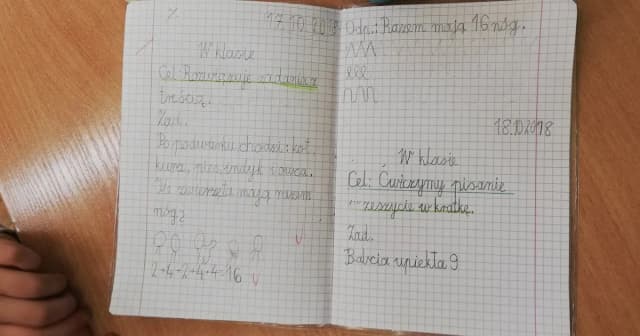 17.10.2018
W klasie
Cel: Rozwiązuje zadania z
treścią.
Zad.
Po podwórku chodzi: kot,
kura, pies, indyk i owca.
Ile zwierzęta mają razem
nóg?
2+4+2+4+4=16
Odp.: Razem mają 16 nóg.
18.10.2018
W klasie
Cel: Ćwiczymy pisanie
w zeszycie w kratkę.
Zad.
Babcia upiekła 9